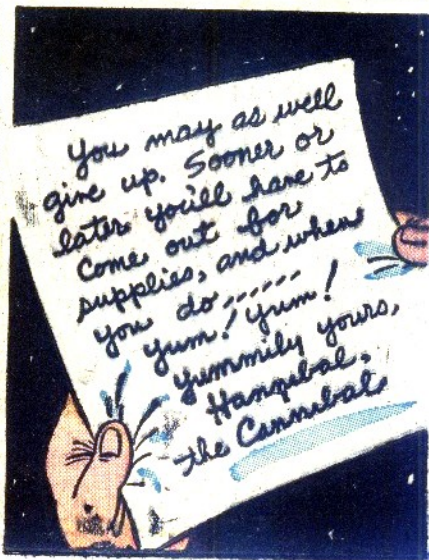 You may as well
give up. Sooner or
later you'll have to
come out for
supplies, and when
you do------
yum! yum!
yummily yours,
Hannibal,
the Cannibal